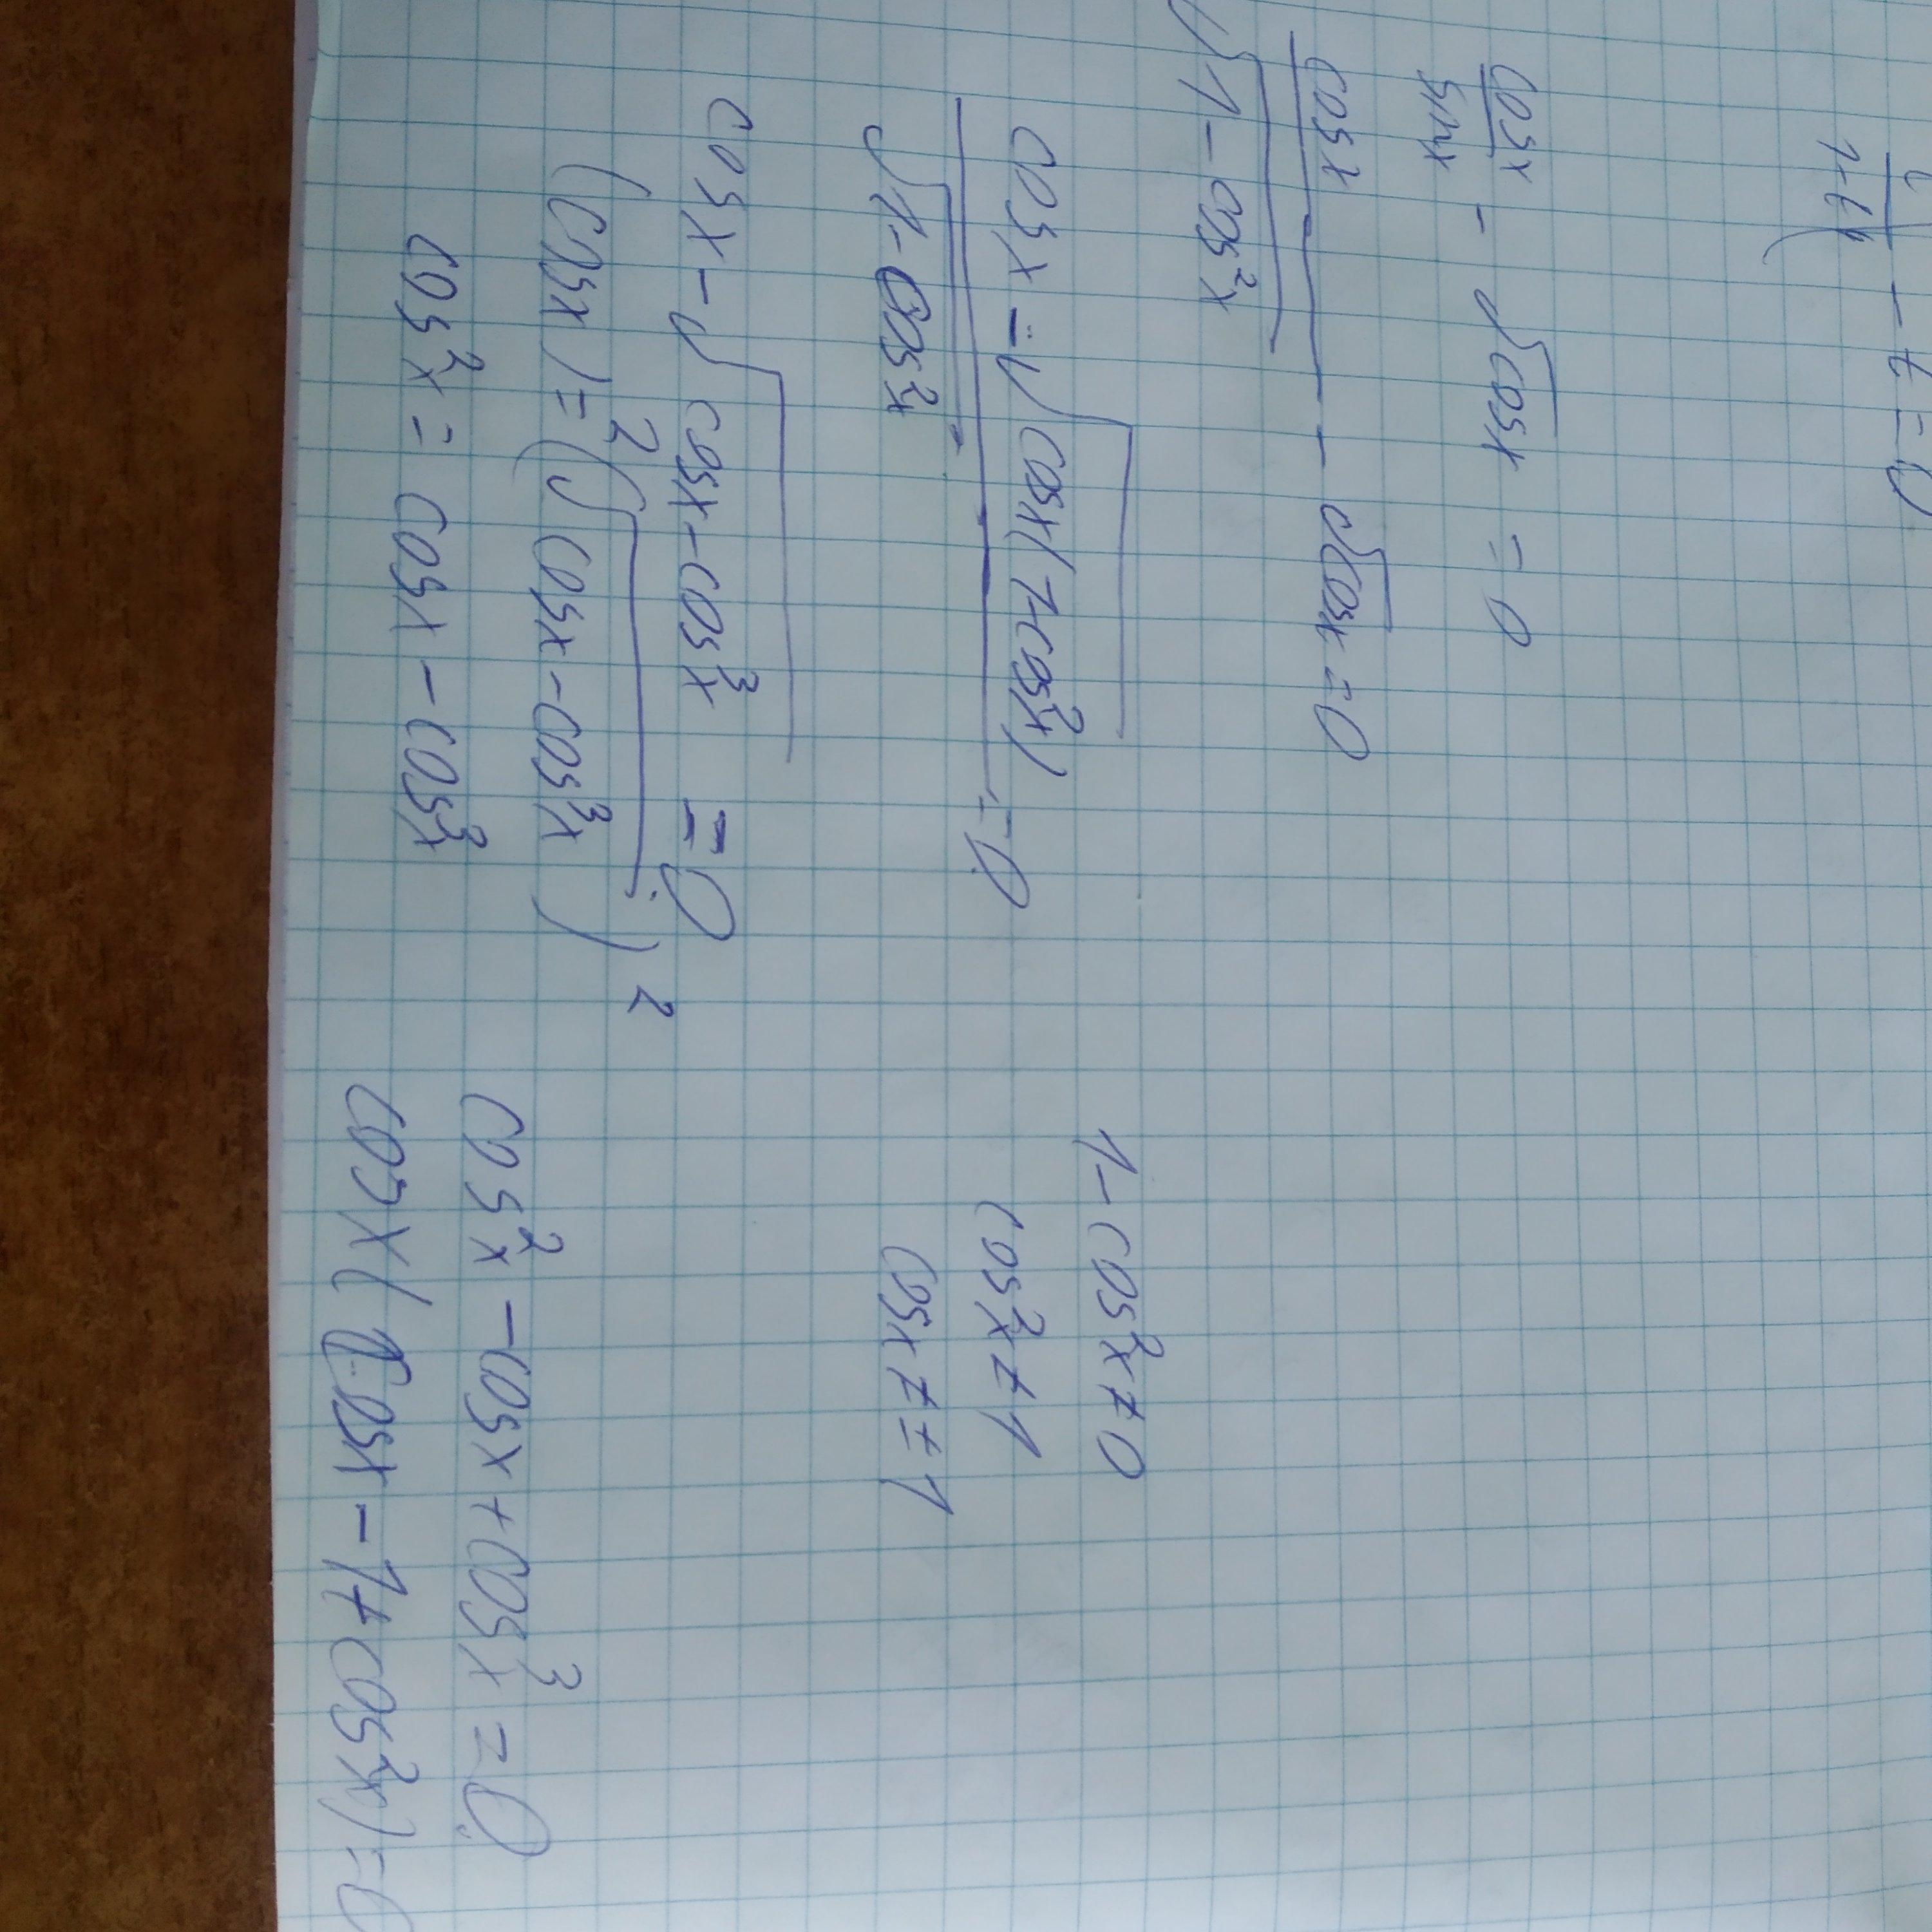 1+t - t = 0
cosx/sinx - √cosx = 0
cosx/√1-cos²x - √cosx = 0
cosx - √cosx(1-cos²x)/√1-cos²x = 0
1-cos²x≠0
cos²x≠1
cosx≠±1
cosx - √cosx-cos³x = 0
(cosx)²=(√cosx-cos³x)²
cos²x = cosx - cos³x
cos²x - cosx + cos³x = 0
cosx(cosx - 1 + cos²x) = 0